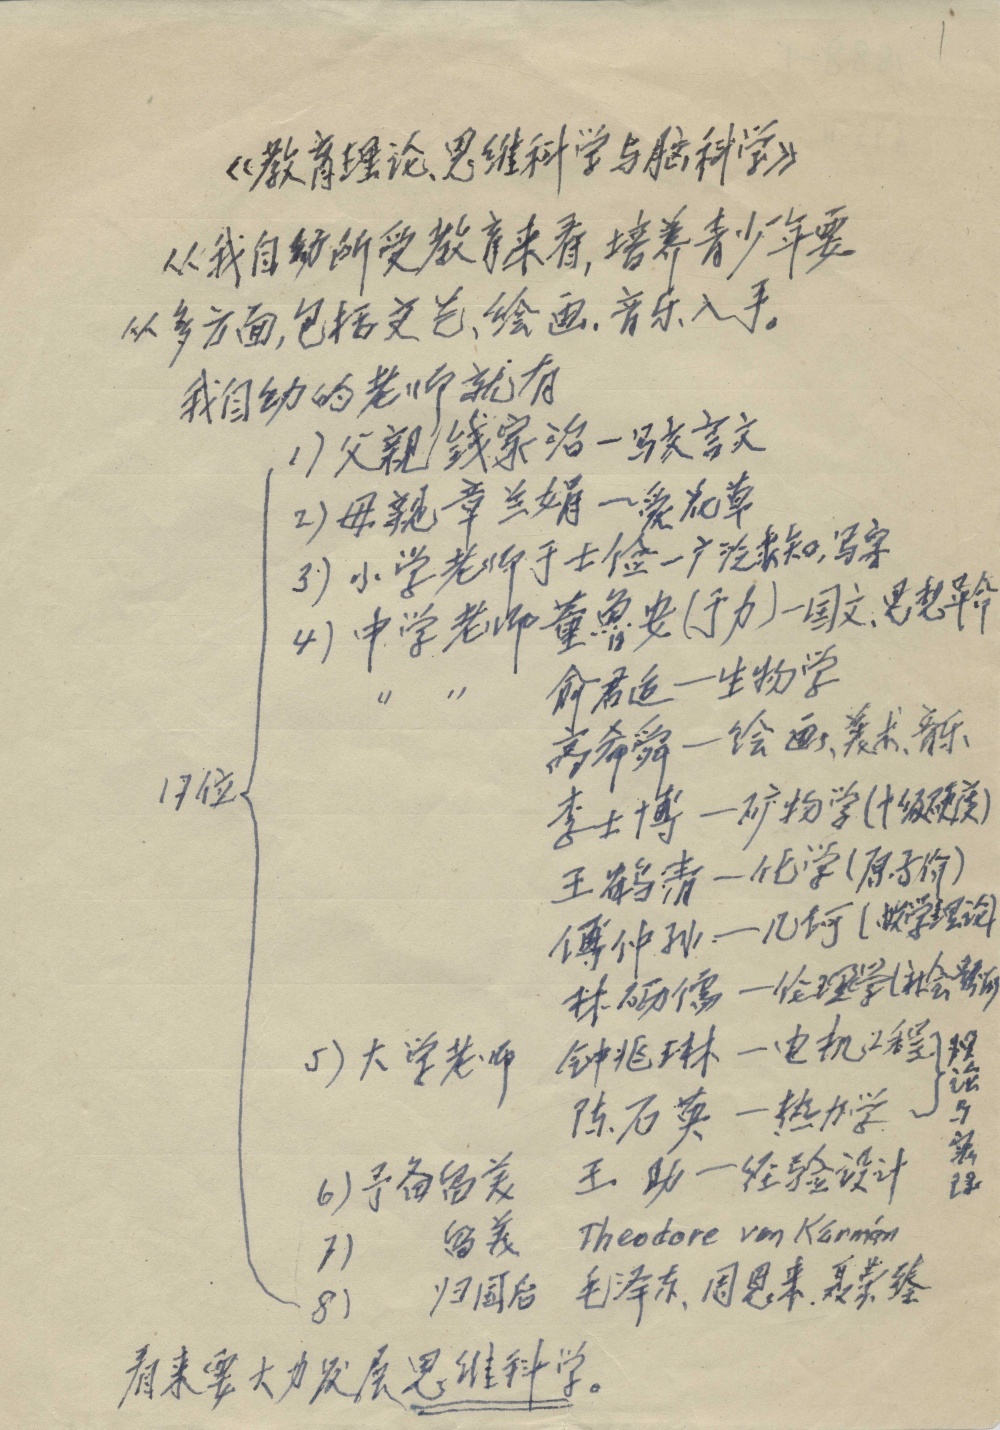 1
《教育理论、思维科学与脑科学》
从我自幼所受教育来看,培养青少年要
从多方面,包括文艺、绘画、音乐、入手。
我自幼的老师就有
1) 父親 钱家治—写文言文
2) 母親 章兰娟—爱花草
3) 小学老师于士俭—广泛求知,写字
4) 中学老师 董鲁安(于力)—国文、思想革命
" " 俞君适—生物学
高希舜—绘画、美术、音乐
李士博—矿物学(十级硬度)
王鹤清—化学(原子价)
傅仲孙—几何(数学理论)
林砺儒—伦理学(社会
5) 大学老师 钟兆琳—电机工程
陈石英—热力学
理论与实际
6) 予备留美 王助—经验设计
7) 留美 Theodore von Kármán
8) 归国后 毛泽东、周恩来、聂荣臻
17位
看来要大力发展思维科学。